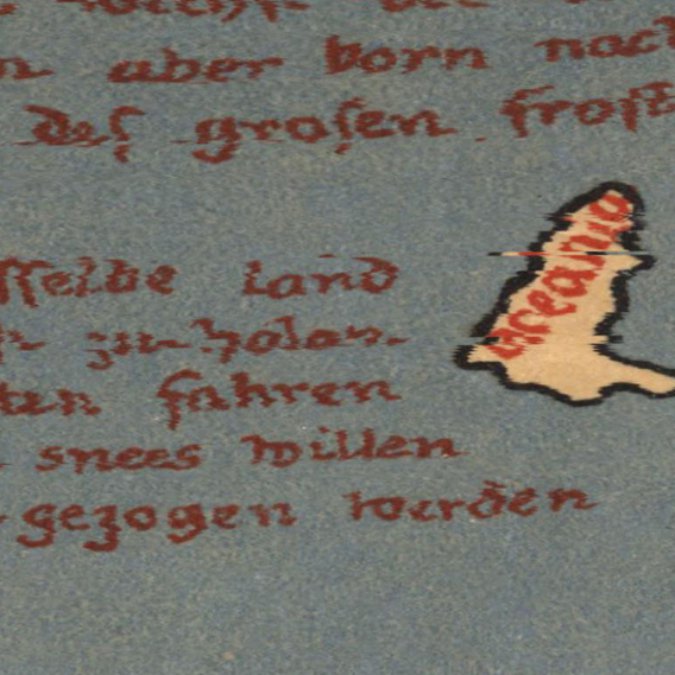 aber vorn nach
des grosen frost
sselbe land
zu holan
ten fahren
snees willen
gezogen werden